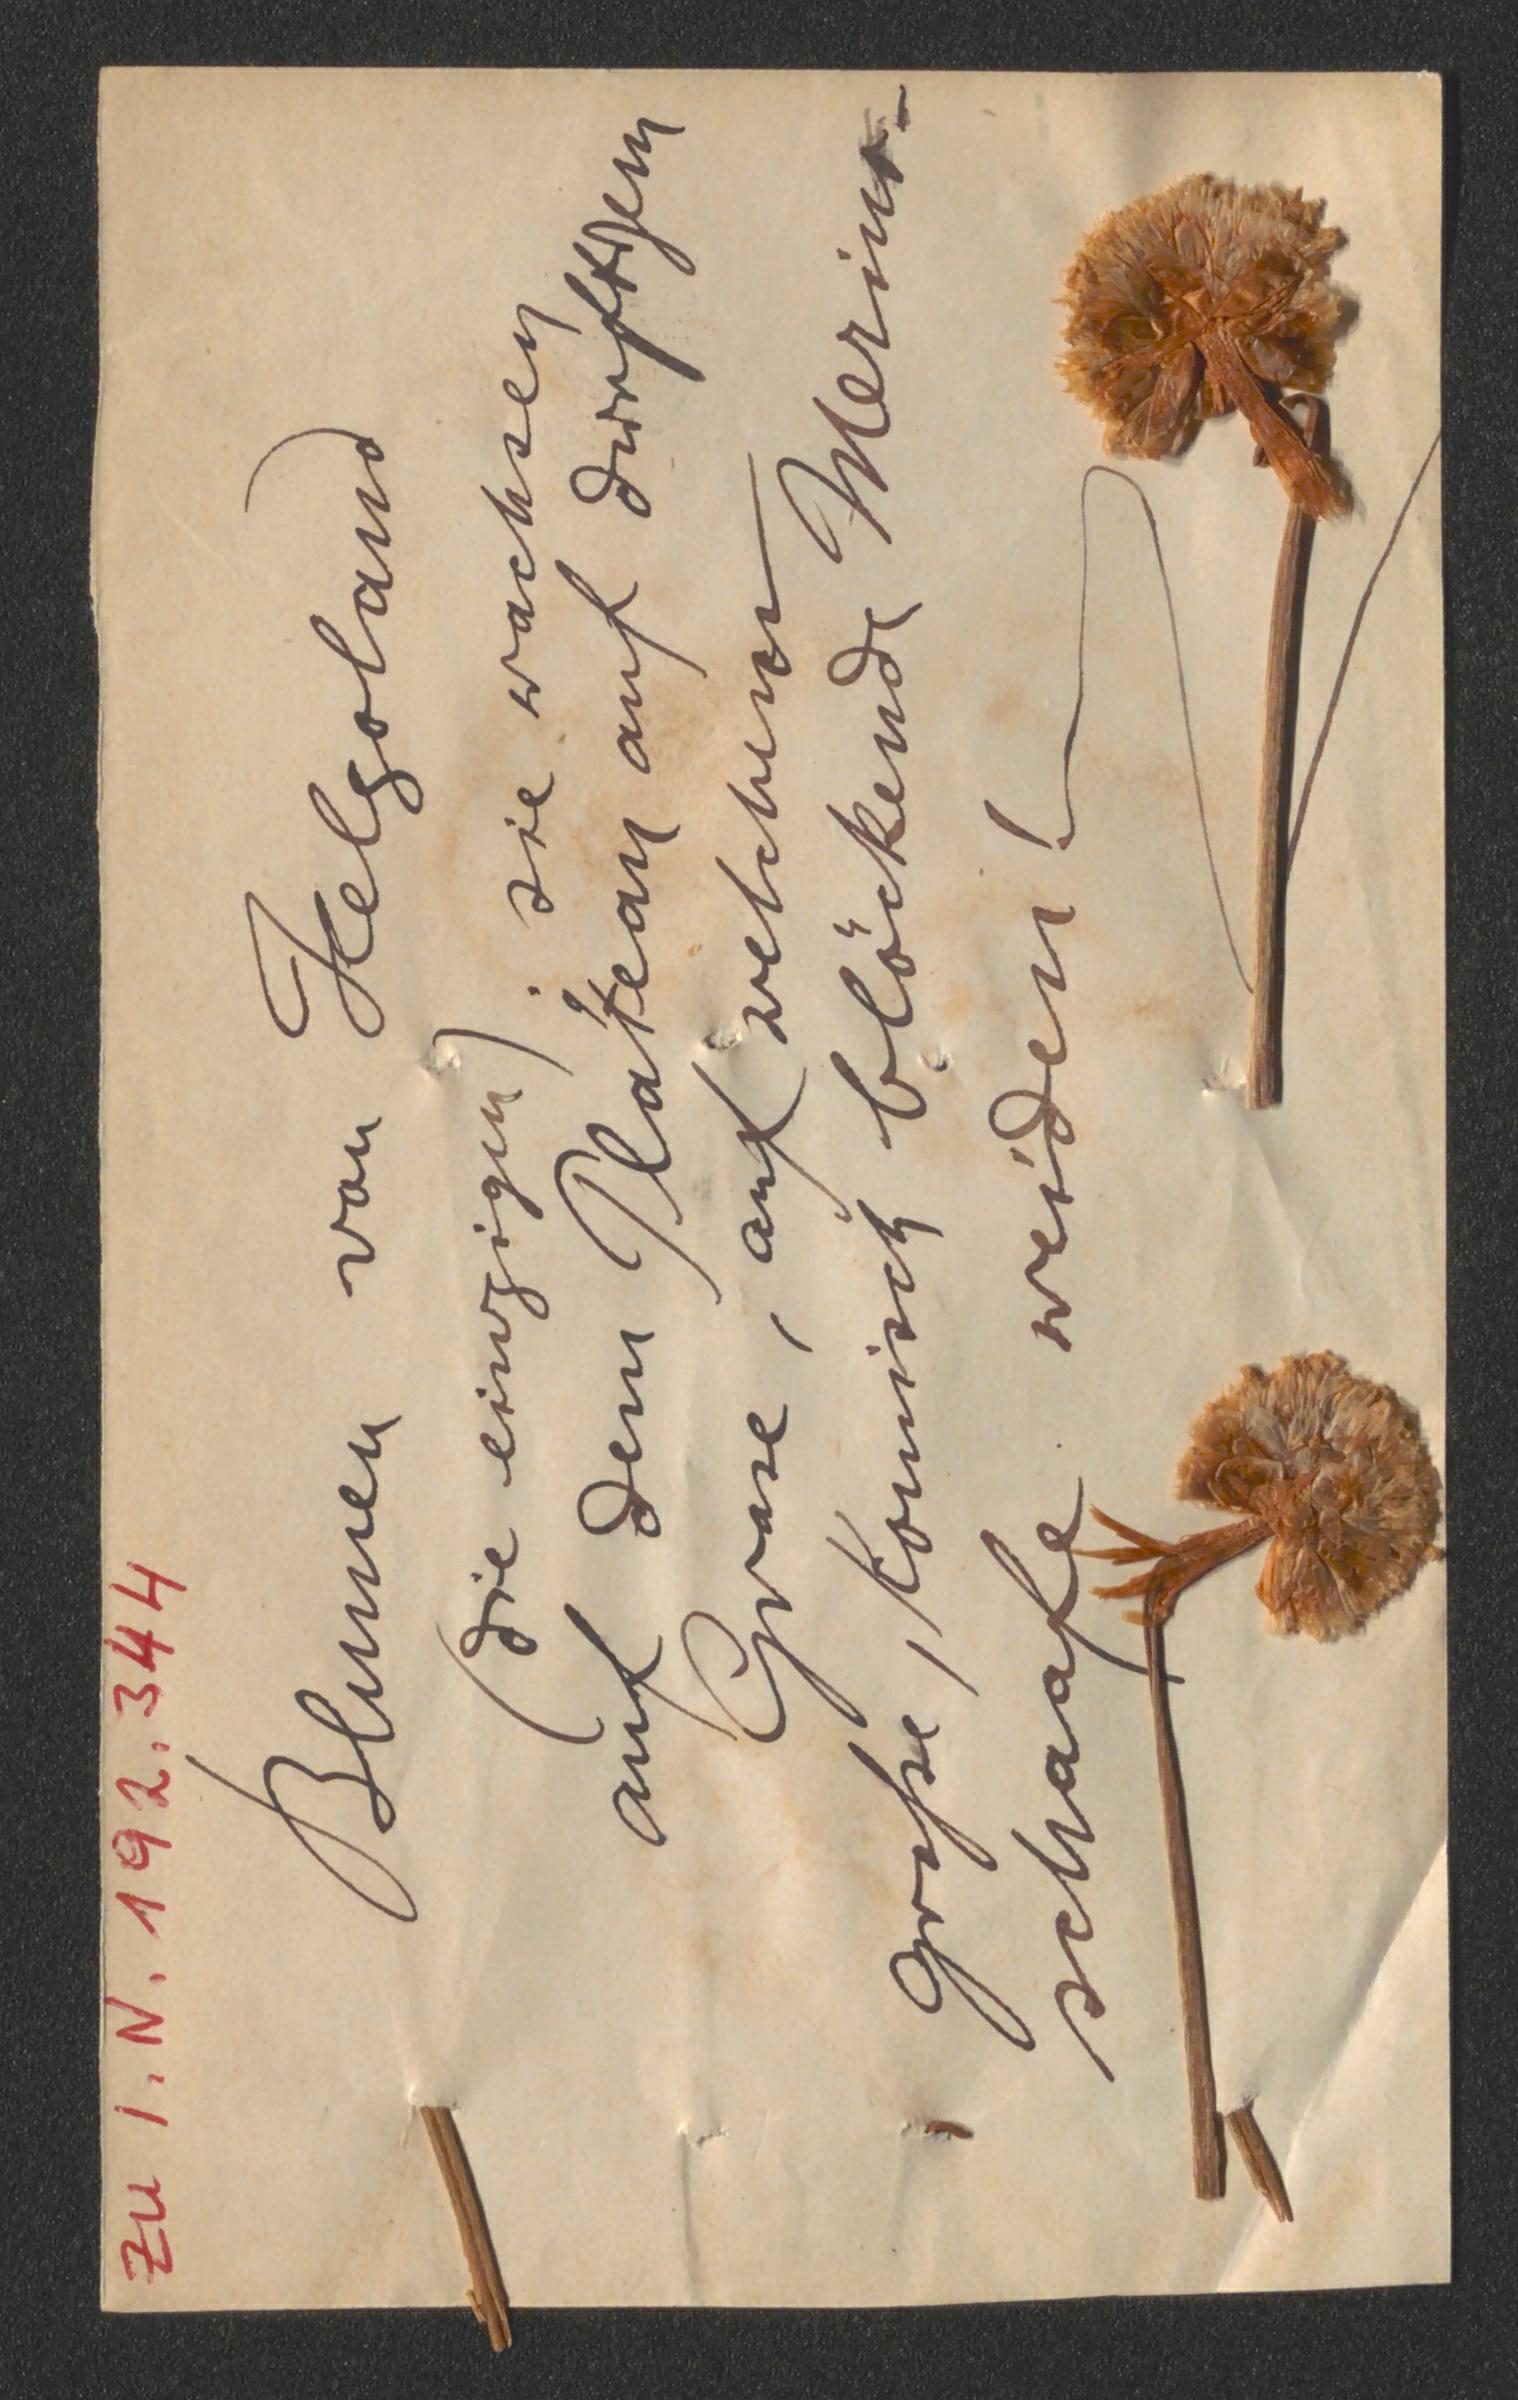 Zu I.N. 192.344
Blumen von Helgoland
(die einzigen); sie wachsen
auf dem Plateau auf dürftigem
Grase, auf welchem
große, komisch blöckende Merino-
schaafe weiden!